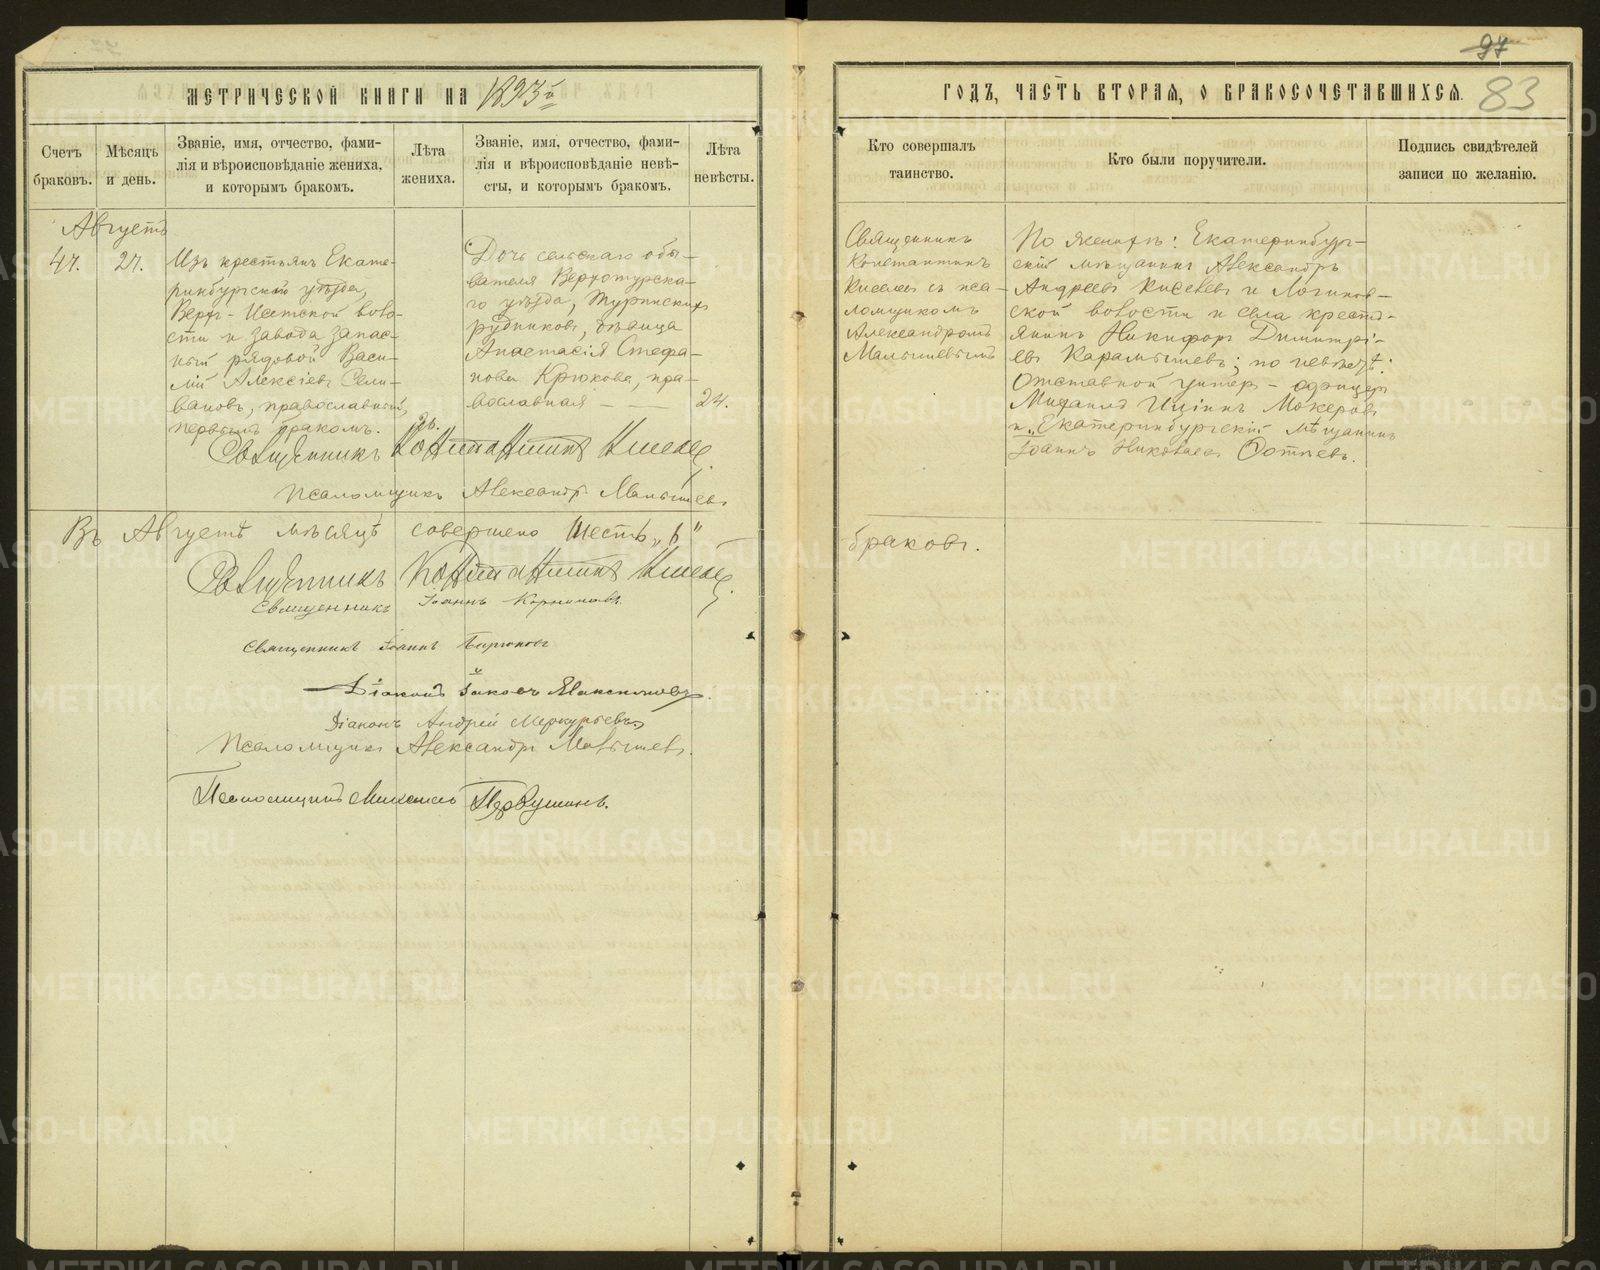 97
83
МЕТРИЧЕСКОЙ КНИГИ НА 1893й
ГОДЪ, ЧАСТЬ ВТОРАЯ, О БРАКОСОЧЕТАВШИХСЯ.
Счетъ
браковъ.
Мѣсяцъ
и день.
Званіе, имя, отчество, фами-
лія и вѣроисповѣданіе жениха,
и которымъ бракомъ.
Лѣта
жениха.
Званіе, имя, отчество, фами-
лія и вѣроисповѣданіе невѣ-
сты, и которымъ бракомъ.
Лѣта
невѣсты.
Кто совершалъ
таинство.
Кто были поручители.
Подпись свидѣтелей
записи по желанію.
Августъ
47.
27.
Изъ крестьянъ Екате-
ринбургской уѣзда,
Верхъ-Исетской воло-
сти и завода запас-
ный рядовой Васи-
лій Алексіевъ Сели-
вановъ, православный,
первымъ бракомъ.
26.
Дочь сельскаго обы-
вателя Верхотурска-
го уѣзда, Туринскихъ
рудниковъ, дѣвица
Анастасія Стефа-
нова Крюкова, пра-
вославная
24.
Священникъ
Константинъ
Киселевъ съ пса-
ломщикомъ
Александромъ
Малышевымъ
По женихѣ: Екатеринбург-
скій мѣщанинъ Александръ
Андреевъ Киселевъ и Логинов-
ской волости и села кресть-
янинъ Никифоръ Димитрі-
евъ Карамышевъ; по невѣстѣ:
Отставной унтеръ-офицеръ
Михаилъ Иліинъ Мокеровъ
и Екатеринбургскій мѣщанинъ
Іоаннъ Николаевъ
Священникъ Константинъ Киселевъ
Псаломщикъ Александръ Малышевъ
Въ Августѣ мѣсяцѣ совершено шесть "6"
браковъ.
Священникъ Константинъ Киселевъ
Священникъ Іоаннъ Корниловъ
Священникъ Іоаннъ Бирюковъ
Діаконъ Іаковъ Максимовъ
Діаконъ Андрей Меркурьевъ
Псаломщикъ Александръ Малышевъ.
Псаломщикъ Михаилъ Первушинъ.
METRIKI.GASO-URAL.RU